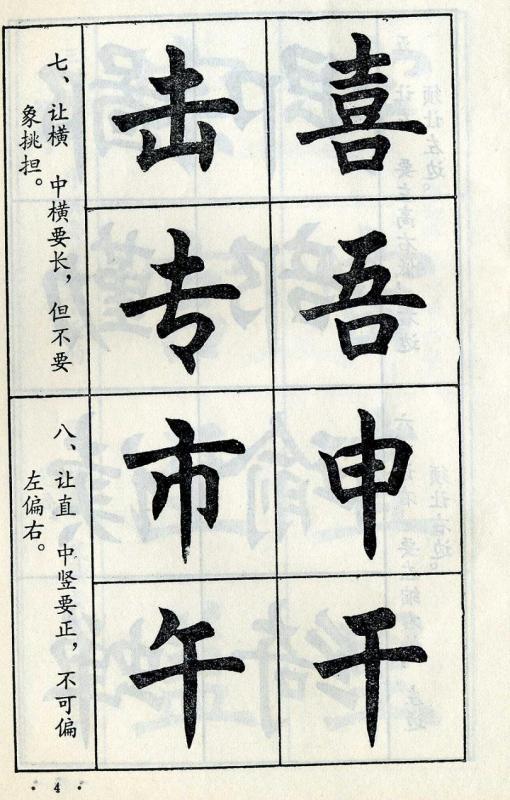 喜
吾
击
专
七、让横 中横要长，但不要
象挑担。
申
干
市
午
八、让直 中竖要正，不可偏
左偏右。
·4·